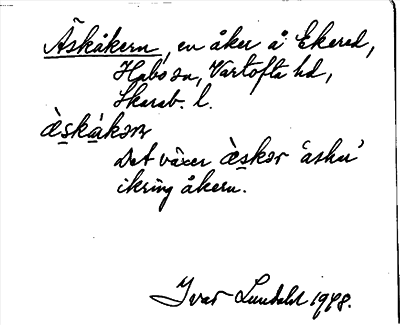 Äskåkern, en åker å Ekered,
Habo sn, Vartofta hd,
Skarab. l.
ä̀skåkərn
Det växer ä̀skər 'askar'
ikring åkern.
Ivar Lundahl 1948.